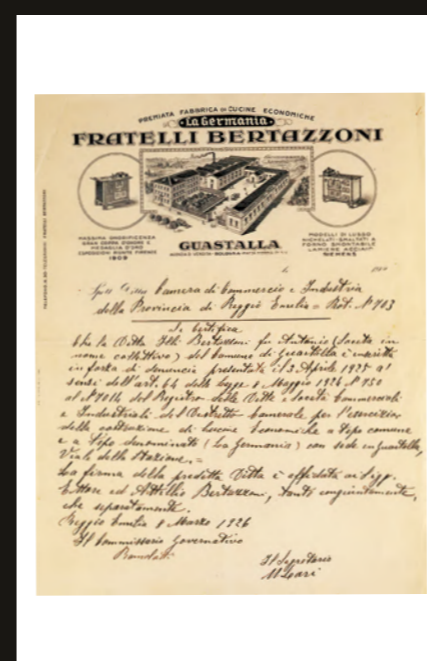 PREMIATA FABBRICA DI CUCINE ECONOMICHE
"La Germania"
FRATELLI BERTAZZONI
MASSIMA ONORIFICENZA
GRAN COPPA D'ONORE E
MEDAGLIA D'ORO
ESPOSIZIONI RIUNITE FIRENZE
1909
GUASTALLA
MODELLI DI LUSSO
NICHELATI-SMALTATI A
FORNO SMONTABILE
LAMIERE ACCIAIO
SIEMENS
Camera di Commercio e Industria
della Provincia di Reggio Emilia = Prot. N° 703
Si certifica
che la Ditta F.lli Bertazzoni fu Antonio (Società in
nome collettivo) del Comune di Guastalla è inscritta
in forza di denuncia presentata il 3 Aprile 1925 ai
sensi dell'art. 64 della legge 8 Maggio 1924 N° 750
al N° 7014 del Registro delle Ditte e Società Commerciali
e Industriali del Distretto Camerale per l'esercizio
della costruzione di cucine economiche a tipo comune
e a tipo denominato (La Germania) con sede in Guastalla,
Viale della Stazione. =
La firma della predetta Ditta è affidata ai Sigg.
Ettore ed Attilio Bertazzoni, tanto congiuntamente,
che separatamente.
Reggio Emilia 8 Marzo 1926
Il Commissario Governativo
Il Segretario